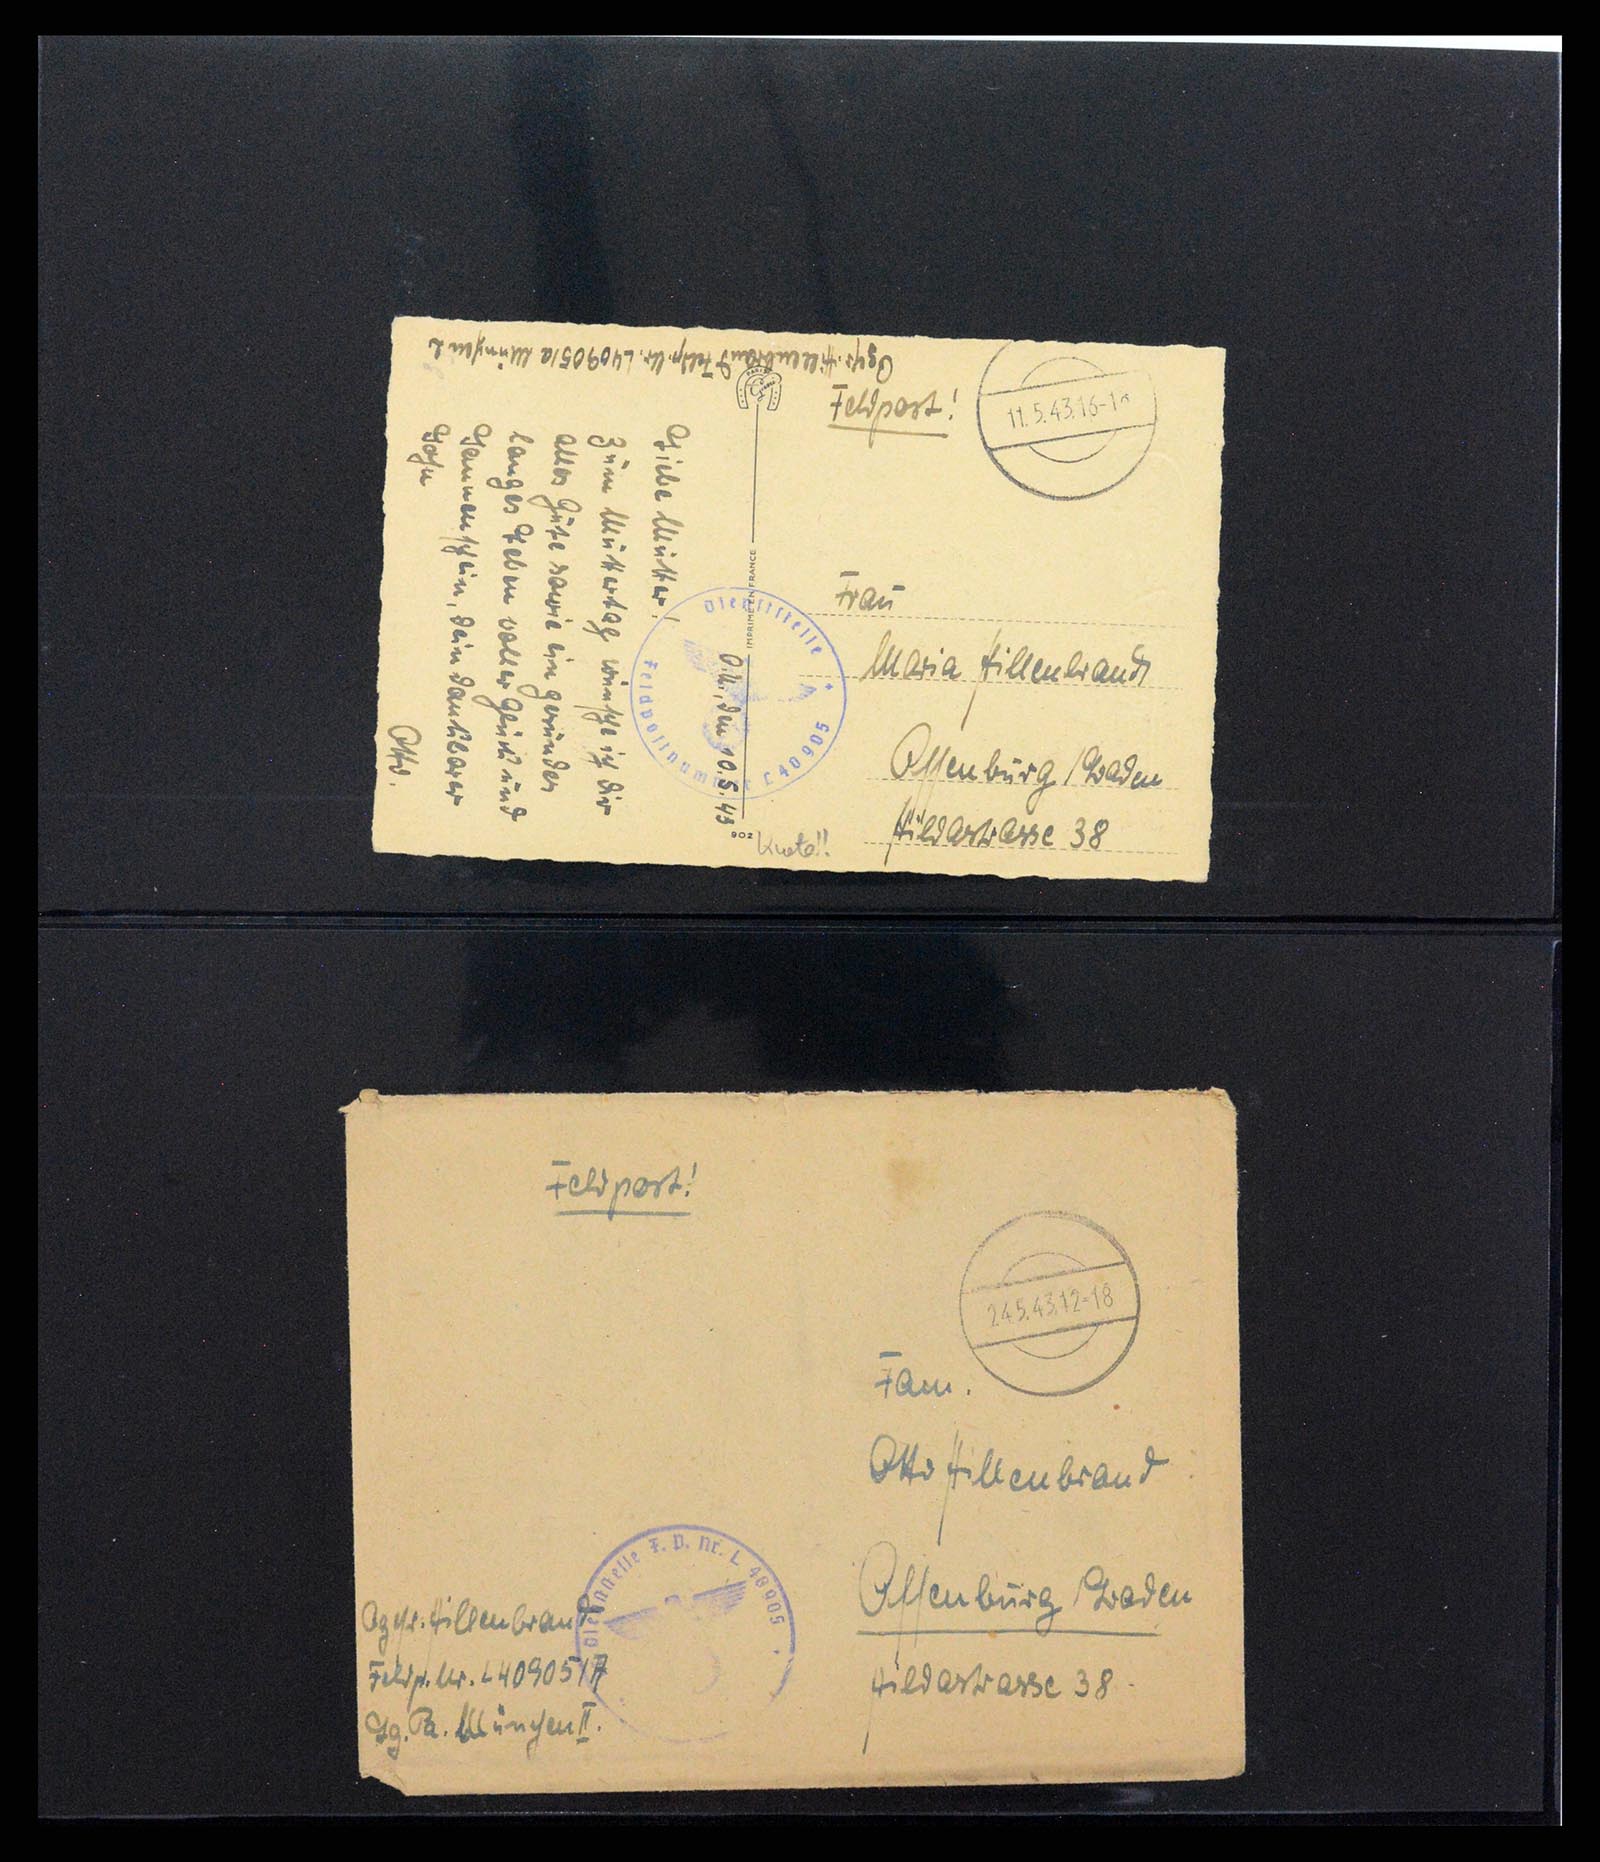 Ogefr. Hillenbrand Feldp. Nr. L 40905/a München 2
Feldpost!
11.5.43.16-1
O.U., den 10.5.43
Liebe Mutter!
Zum Muttertag wünsche ich Dir
alles Gute sowie ein gesundes
langes Leben voller Glück und
Sonnenschein, dein dankbarer
Sohn
Otto.
IMPRIMÉ EN FRANCE
902
Dienststelle
Feldpostnummer L 40905
Frau
Maria Hillenbrand
Offenburg/Baden
Hildastrasse 38
Feldpost!
24.5.43.12-18
Fam.
Otto Hillenbrand
Offenburg/Baden
Hildastrasse 38
Dienststelle F. P. Nr. L 40905
Ogefr. Hillenbrand
Feldp. Nr. L 40905/A
Lg. Pa. München II.